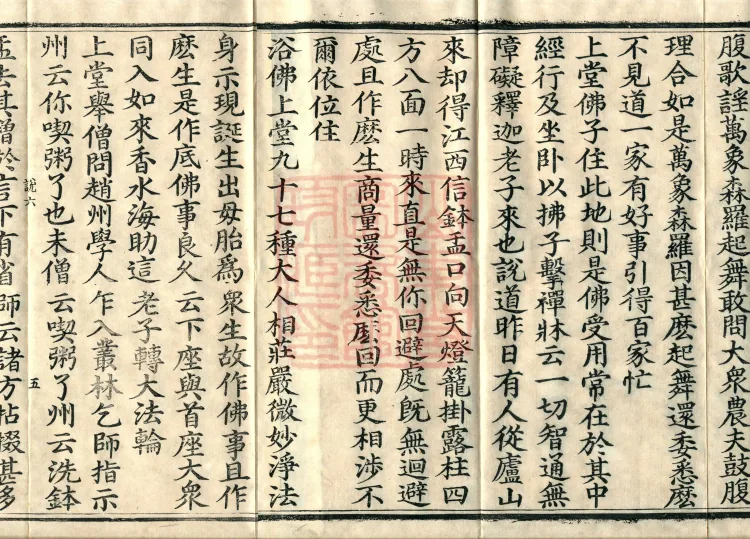 腹歌謡萬象森羅起舞敢問大衆農夫鼓腹
理合如是萬象森羅因甚麽起舞還委悉麽
不見道一家有好事引得百家忙
上堂佛子住此地則是佛受用常在於其中
經行及坐卧以拂子擊禪牀云一切智通無
障礙釋迦老子來也說道昨日有人從廬山
來却得江西信鉢盂口向天燈籠掛露柱四
方八面一時來直是無你回避處旣無迴避
處且作麽生商量還委悉麽回而更相涉不
爾依位住
浴佛上堂九十七種大人相莊嚴微妙淨法
身示現誕生出母胎爲衆生故作佛事且作
麽生是作底佛事良久云下座與首座大衆
同入如來香水海助這老子轉大法輪
上堂舉僧問趙州學人乍入叢林乞師指示
州云你喫粥了也未僧云喫粥了州云洗鉢
說六
五
盂去其僧於言下有省師云諸方帖掇甚多